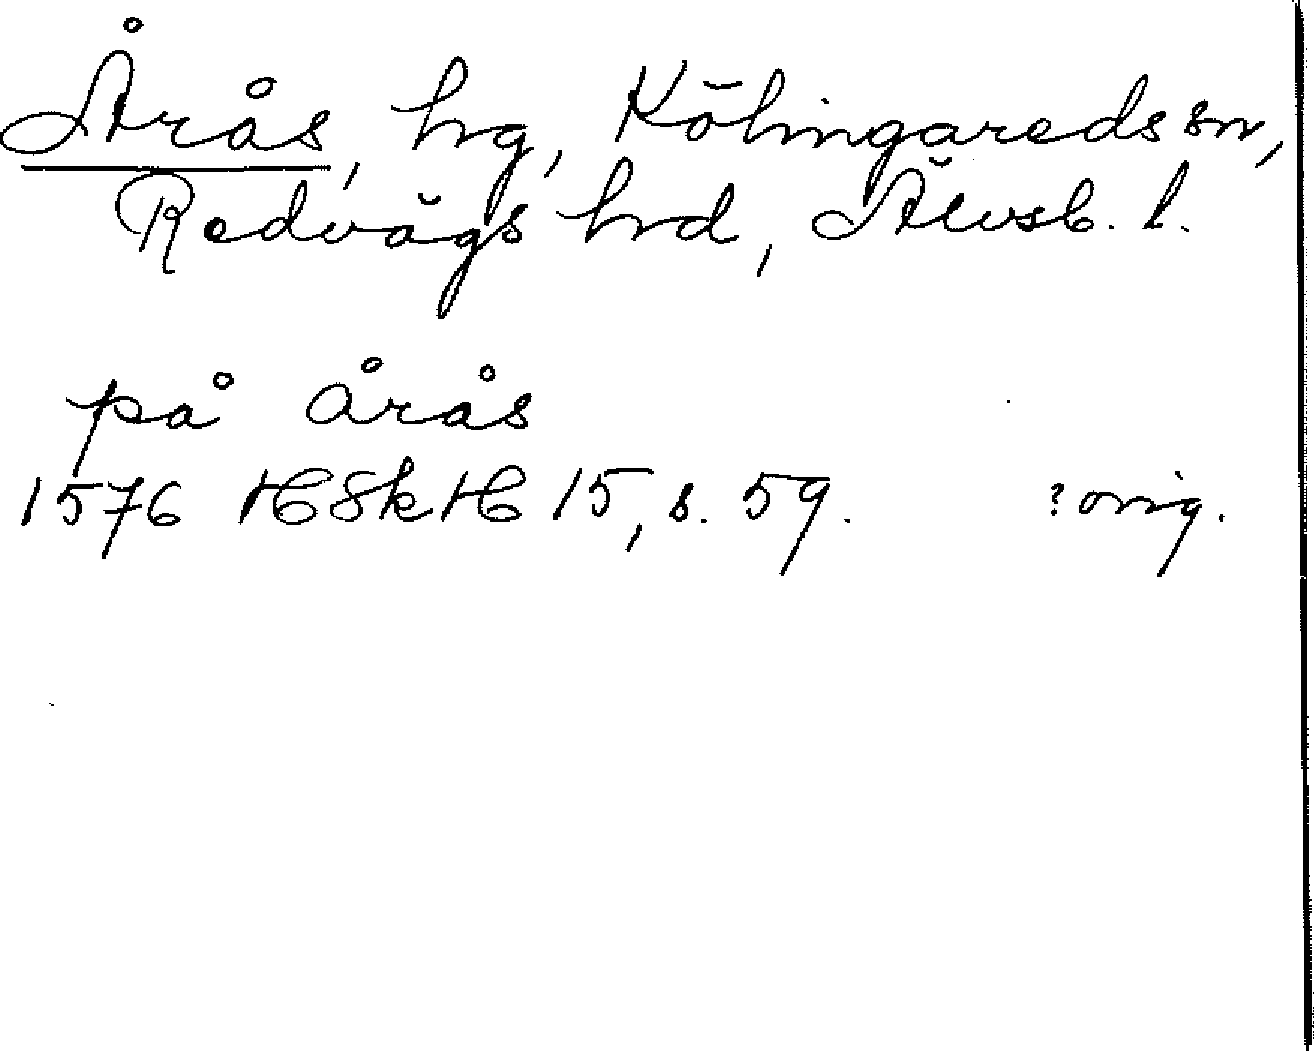 Årås, hg, Kölingareds sn,
Redvägs hd, Älvsb. l.
på årås
1576 HSkH 15, s. 59. ? orig.